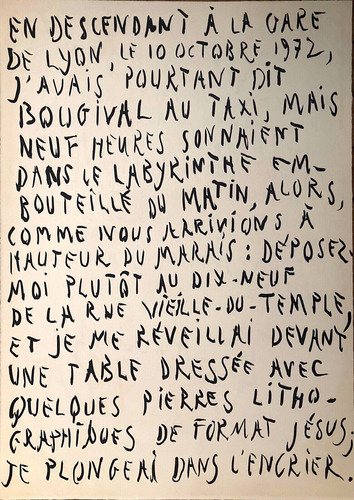 EN DESCENDANT À LA GARE
DE LYON, LE 10 OCTOBRE 1972,
J'AVAIS POURTANT DIT
BOUGIVAL AU TAXI, MAIS
NEUF HEURES SONNAIENT
DANS LE LABYRINTHE EM-
BOUTEILLÉ DU MATIN, ALORS,
COMME NOUS ARRIVIONS À
HAUTEUR DU MARAIS : DÉPOSEZ-
MOI PLUTÔT AU DIX-NEUF
DE LA RUE VIEILLE-DU-TEMPLE,
ET JE ME RÉVEILLAI DEVANT
UNE TABLE DRESSÉE AVEC
QUELQUES PIERRES LITHO-
GRAPHIQUES DE FORMAT JÉSUS;
JE PLONGEAI DANS L'ENCRIER.